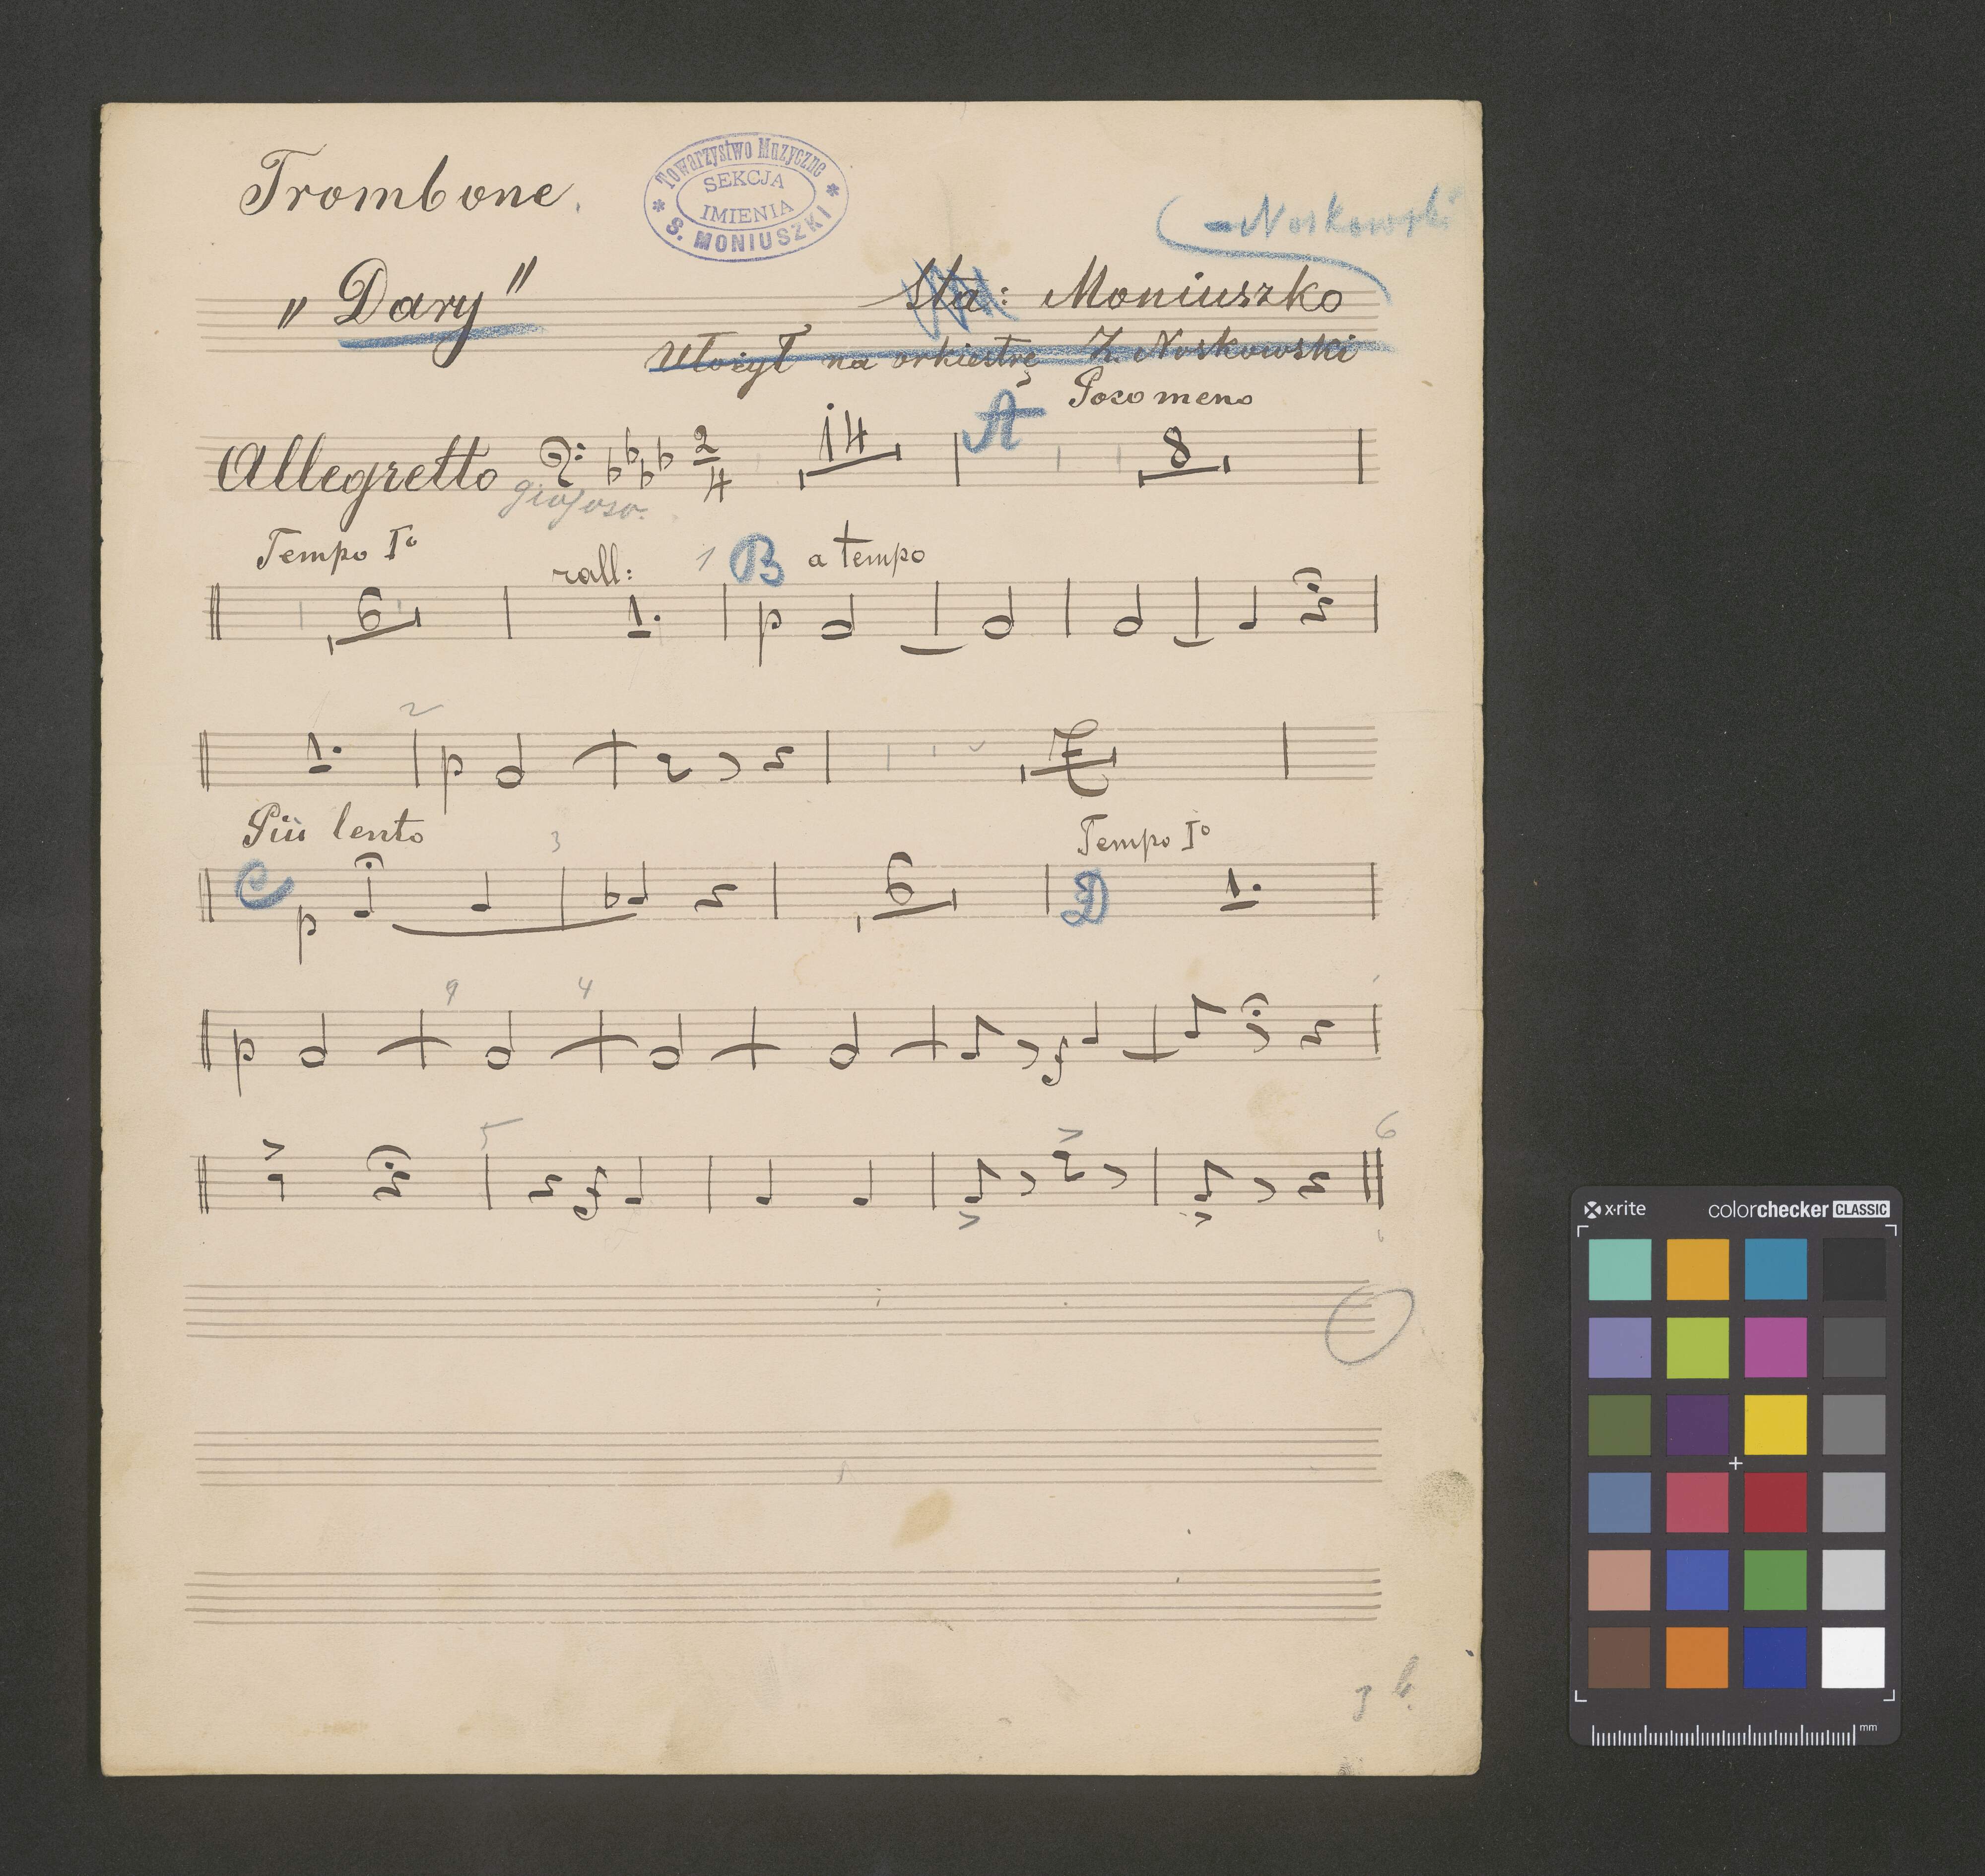 Trombone.
Towarzystwo Muzyczne
SEKCJA
IMIENIA
S. MONIUSZKI
Noskowski
„Dary"
Sta: Moniuszko
Ułożył na orkiestrę Z. Noskowski
A Poco meno
Allegretto 2/4 14 8
giojoso.
Tempo Iº rall: 1 B a tempo
6 1. p
2
1. p 7
Più lento 3 Tempo Iº
C p 6 D 1.
9 4
p f
5 6
f
x·rite colorchecker CLASSIC
mm